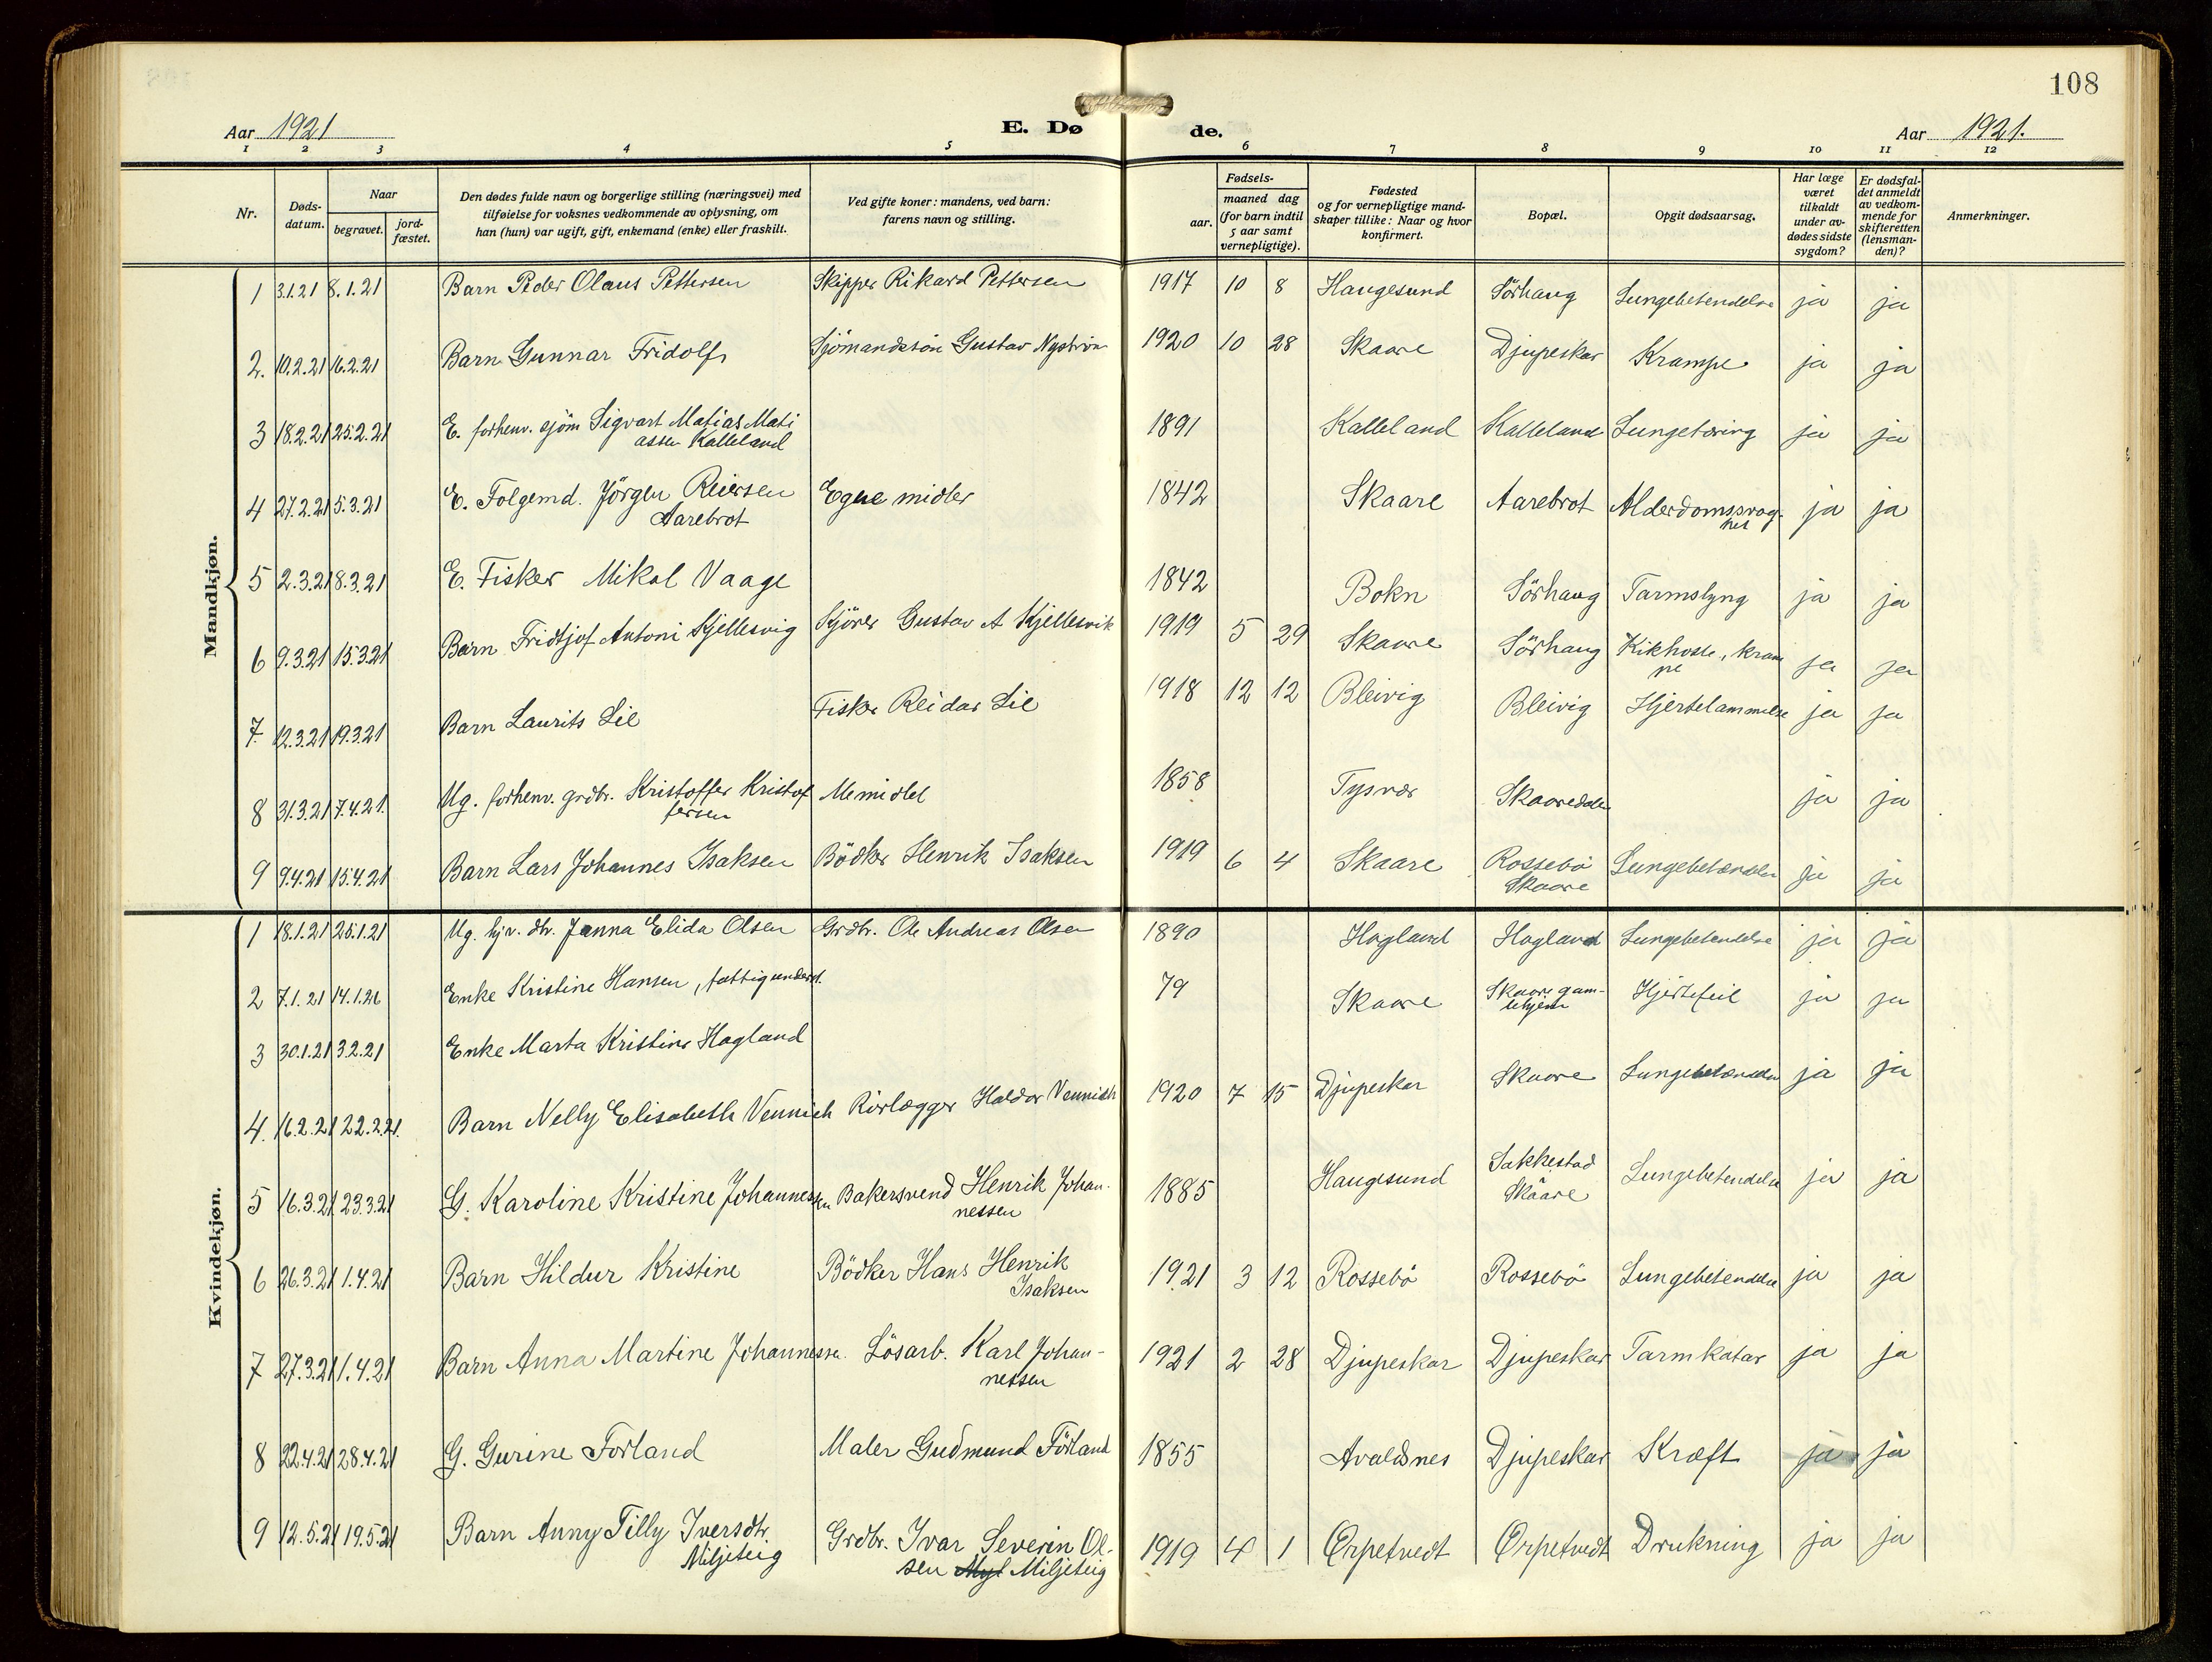 108
Aar 1921
E. Dø
de.
Aar 1921.
1 2 3 4 5 6 7 8 9 10 11 12
Nr.
Døds-
datum.
Naar
begravet.
jord-
fæstet.
Den dødes fulde navn og borgerlige stilling (næringsvei) med
tilføielse for voksnes vedkommende av oplysning, om
han (hun) var ugift, gift, enkemand (enke) eller fraskilt.
Ved gifte koner: mandens, ved barn:
farens navn og stilling.
Fødsels-
aar.
maaned dag
(for barn indtil
5 aar samt
vernepligtige).
Fødested
og for vernepligtige mand-
skaper tillike: Naar og hvor
konfirmert.
Bopæl.
Opgit dødsaarsag.
Har læge
været
tilkaldt
under av-
dødes sidste
sygdom?
Er dødsfal-
det anmeldt
av vedkom-
mende for
skifteretten
(lensman-
den)?
Anmerkninger.
Mandkjøn.
1 3.1.21 8.1.21 Barn Peder Olaus Pettersen Skipper Rikard Pettersen 1917 10 8 Haugesund Sörhaug Lungebetendelse ja ja
2. 10.2.21 16.2.21 Barn Gunnar Fridolf Gustav 1920 10 28 Skaare Djupeskar Krampe ja ja
3 18.2.21 25.2.21 E. forhenv. sjöm Sigvart Matias Mati
assen Kalleland 1891 Kalleland Kalleland Lungetæring ja ja
4 27.2.21 5.3.21 E. Folgemd. Jörgen Reiersen
Aarebrot Egne midler 1842 Skaare Aarebrot Alderdomssvag-
het ja ja
5 2.3.21 8.3.21 E. Fisker Mikal Vaage 1842 Bokn Sörhaug Tarmslyng ja ja
6 9.3.21 15.3.21 Barn Fridtjof Antoni Kjellesvig Gustav A Kjellesvik 1919 5 29 Skaare Sörhaug Kikhoste, kram
pe ja ja
7. 12.3.21 19.3.21 Barn Laurits Lie Fisker Reidar Lie 1918 12 12 Bleivig Bleivig Hjertelammelse ja ja
8 31.3.21 7.4.21. Ug. forhenv. grdbr. Kristoffer Kristof
fersen 1858 Tysvær Skaaredalen ja ja
9 9.4.21 15.4.21 Barn Lars Johannes Isaksen Bödker Henrik Isaksen 1919 6 4 Skaare Rossebö
Skaare Lungebetændelse ja ja
Kvindekjøn.
1 18.1.21 25.1.21 Ug. hjv. dtr. Janna Elida Olsen Grdbr. Ole Andreas Olsen 1890 Hagland Hagland Lungebetendelse ja ja
2 7.1.21 14.1.21 Enke Kristine Hansen, fattigunderst. 79 Skaare Skaare gam-
lehjem Hjertefeil ja ja
3 30.1.21 3.2.21 Enke Marta Kristine Hagland
4. 16.2.21 22.2.21. Barn Nelly Elisabeth Vennich Rörlægger Haldor Vennich 1920 7 15 Djupeskar Skaare Lungebetændelse ja ja
5 16.3.21 23.3.21 G. Karoline Kristine Johannessen Bakersvend Henrik Johan-
nessen 1885 Haugesund Sakkestad
Skaare Lungebetendelse ja ja
6 26.3.21 1.4.21 Barn Hildur Kristine Bödker Hans Henrik
Isaksen 1921 3 12 Rossebö Rossebö Lungebetendelse ja ja
7 27.3.21 1.4.21 Barn Anna Martine Johannessen. Lösarb. Karl Johan-
nessen 1921 2 28 Djupeskar Djupeskar Tarmkatar ja ja
8 22.4.21 28.4.21 G. Gurine Forland Maler Gudmund Förland 1855 Avaldsnes Djupeskar Kræft ja ja
9 12.5.21 19.5.21 Barn Anny Tilly Iversdtr.
Miljeteig Grdbr. Ivar Severin Ol-
sen Miljeteig 1919 4 1 Ørpetvedt Ørpetvedt Drukning ja ja